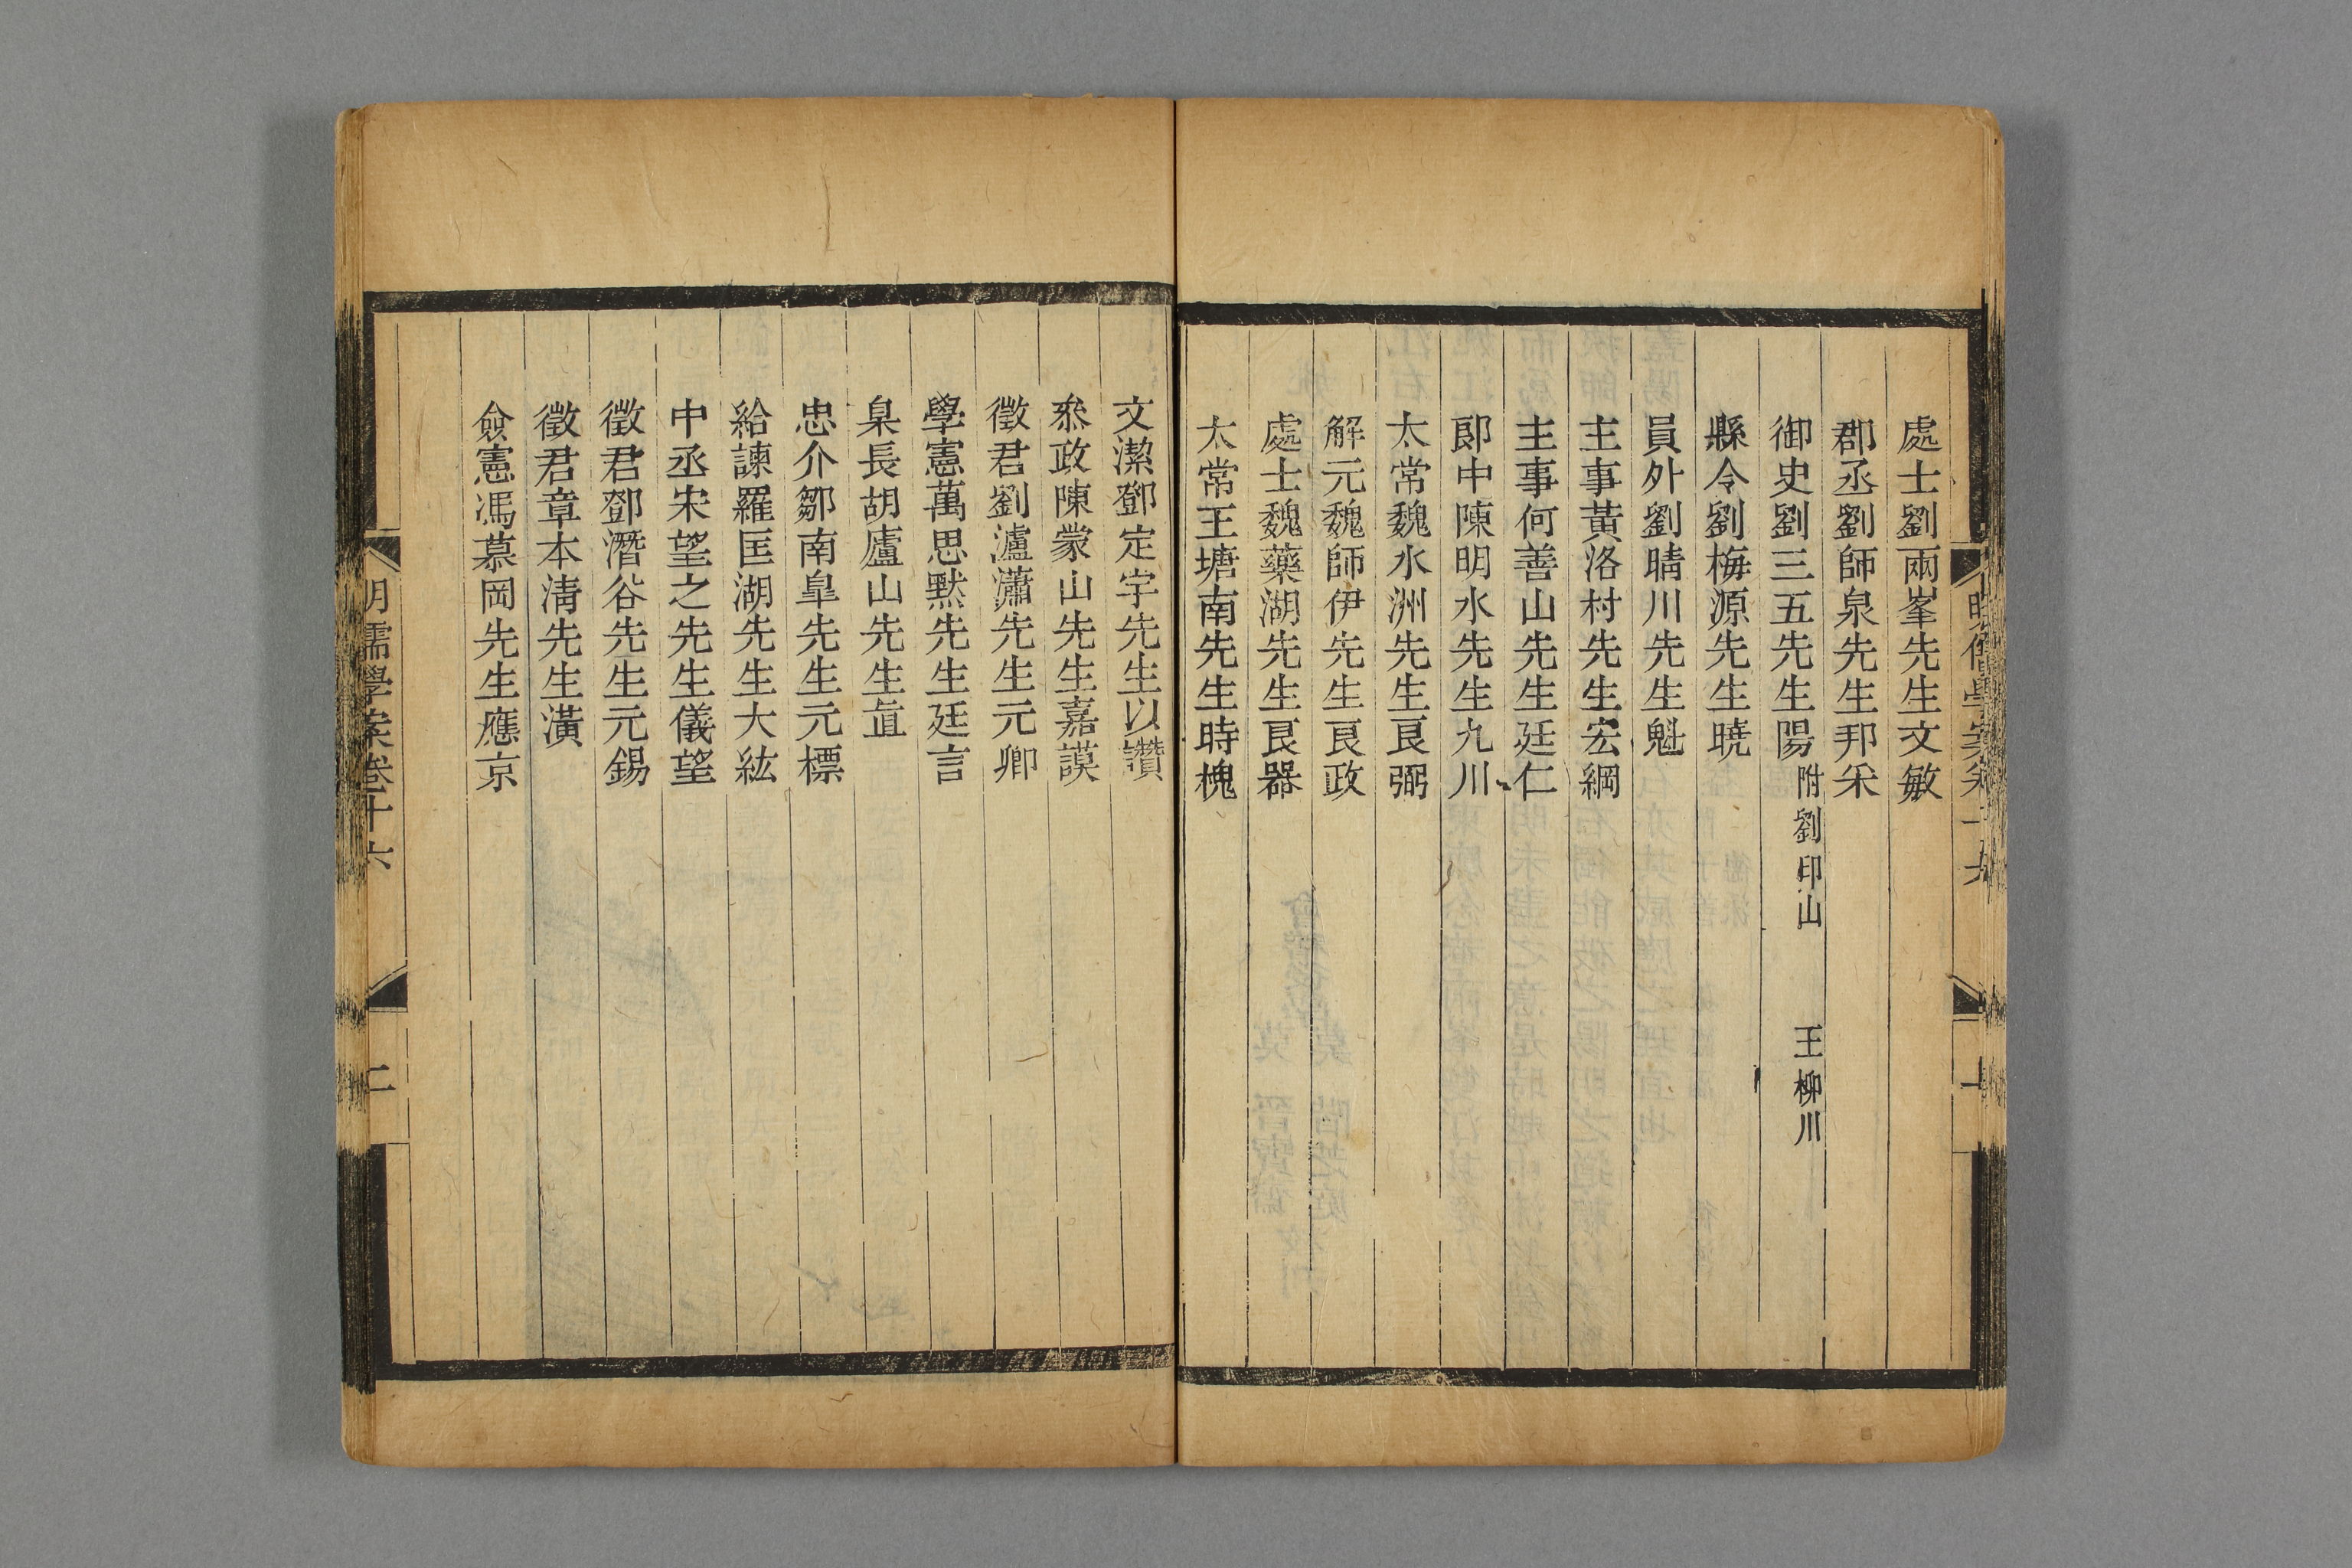 處士劉兩峯先生文敏
郡丞劉師泉先生邦采
御史劉三五先生陽 附劉印山 王柳川
縣令劉梅源先生曉
員外劉晴川先生魁
主事黃洛村先生宏綱
主事何善山先生廷仁
郎中陳明水先生九川
太常魏水洲先生良弼
解元魏師伊先生良政
處士魏藥湖先生良器
太常王塘南先生時槐
文潔鄧定宇先生以讚
叅政陳蒙山先生嘉謨
徵君劉瀘瀟先生元卿
學憲萬思默先生廷言
臬長胡廬山先生直
忠介鄒南臯先生元標
給諫羅匡湖先生大紘
中丞宋望之先生儀望
徵君鄧潛谷先生元錫
徵君章本清先生潢
僉憲馮慕岡先生應京
明儒學案卷十六
二